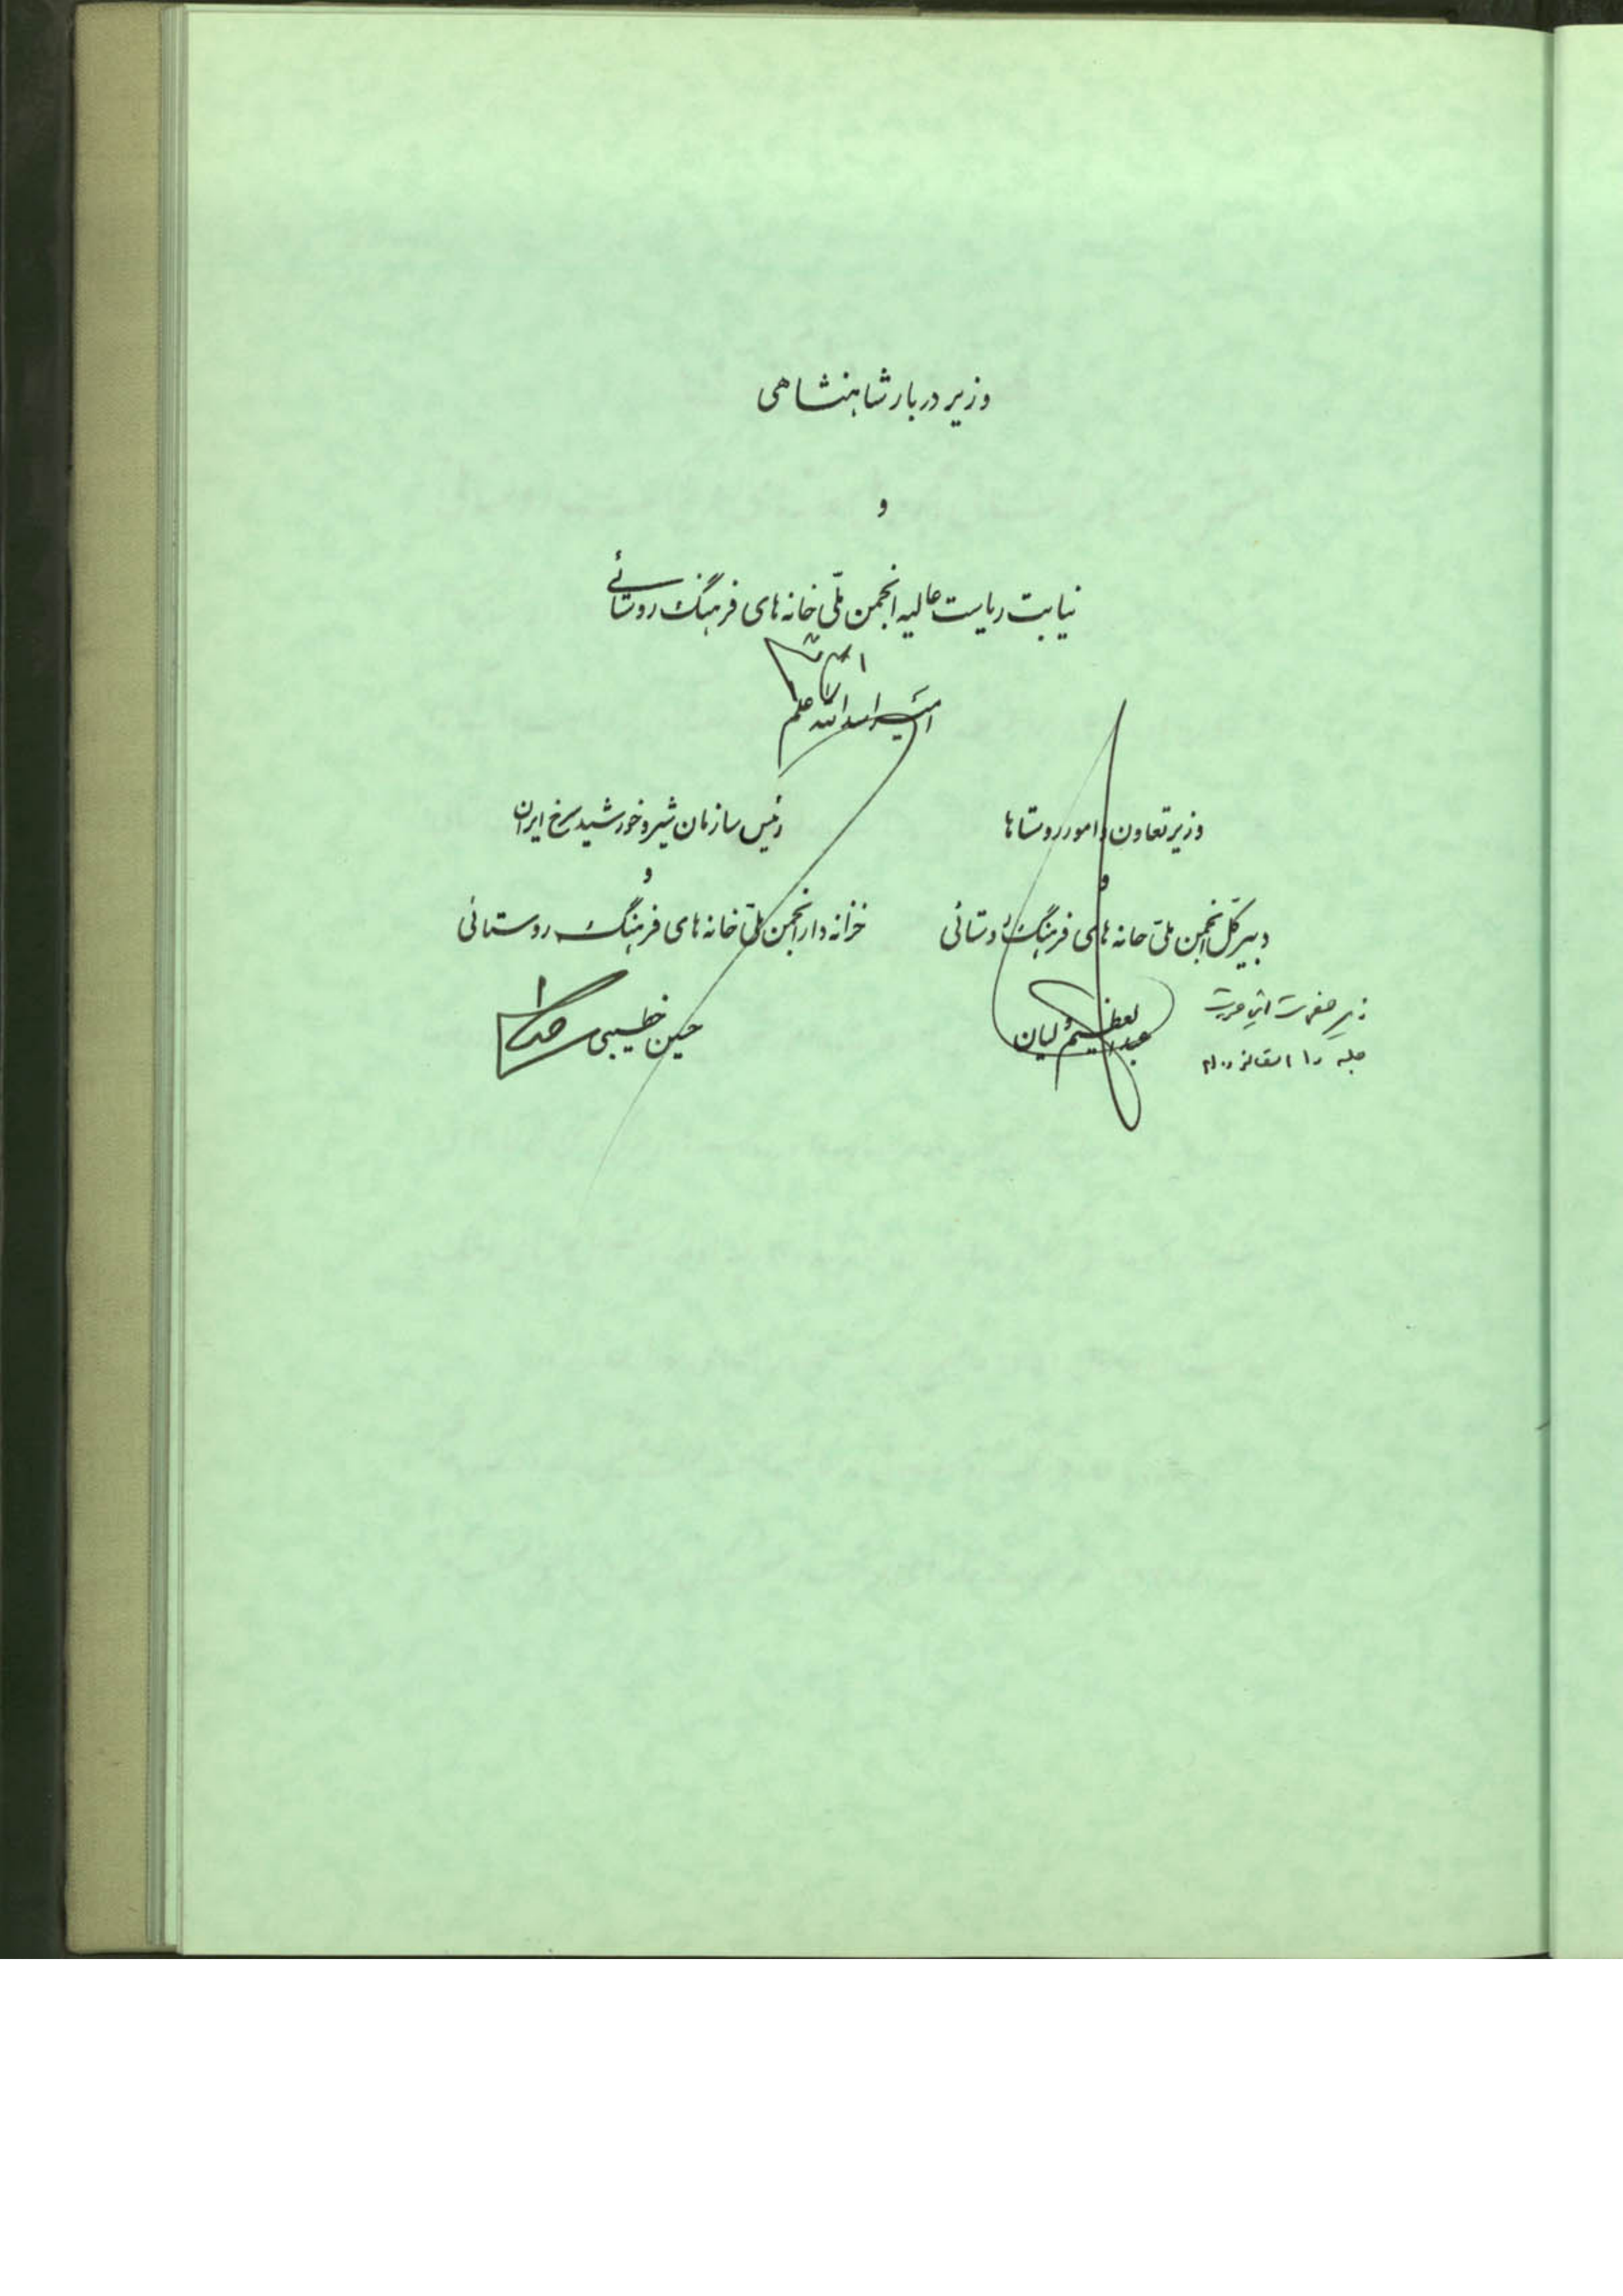 وزیر دربار شاهنشاهی
و
نیابت ریاست عالیه انجمن ملّی خانه های فرهنگ روستائی
امیر اسدالله علم
وزیر تعاون و امور روستاها
و
دبیر کلّ انجمن ملّی خانه های فرهنگ روستائی
عبدالعظیم ولیان
رئیس سازمان شیر و خورشید سرخ ایران
و
خزانه دار انجمن ملّی خانه های فرهنگ روستائی
حسین خطیبی